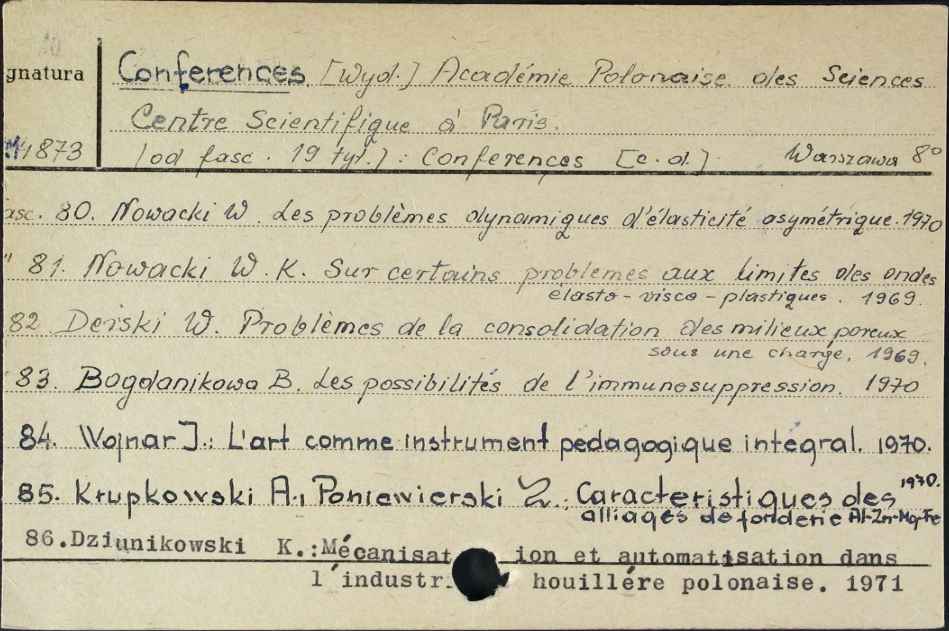 gnatura
Conferences [Wyd.] Académie Polonaise des Sciences
Centre Scientifique à Paris.
1873 [od fasc. 19 tyt.]: Conferences [c.d.]. Warszawa 8°
asc. 80. Nowacki W. Les problèmes dynamiques d'élasticité asymétrique. 1970
" 81. Nowacki W. K. Sur certains problemes aux limites des ondes
élasto-visco-plastiques. 1969.
82 Derski W. Problèmes de la consolidation des milieux poreux
sous une charge, 1969.
83. Bogdanikowa B. Les possibilités de l'immunosuppression. 1970
84. Wojnar J.: L'art comme instrument pedagogique integral. 1970.
85. Krupkowski A., Poniewierski Z.: Caracteristiques des 1970.
alliages de fonderie Al-Zn-Mg-Fe
86.Dziunikowski K.:Mécanisat ion et automatisation dans
l'industri houillére polonaise. 1971